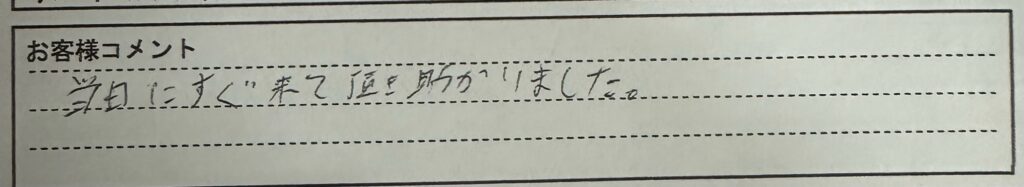 お客様コメント
当日にすぐ来て頂き助かりました。